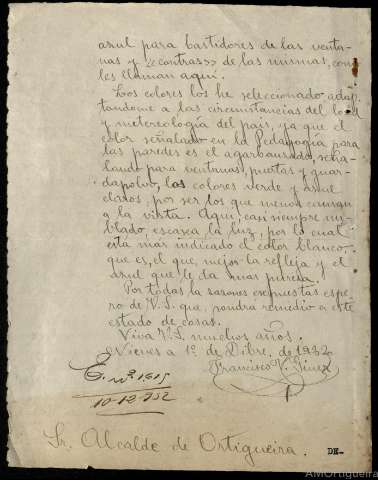 azul para bastidores de las venta-
nas y «contras» de las mismas, como
les llaman aquí.
Los colores los he seleccionado adap-
tandome a las circunstancias del local
y metereología del país, ya que el
color señalado en la Pedagogía para
las paredes es el agarbanzado, seña-
lando para ventanas, puertas y guar-
dapolvo, los colores verde y azul
claros, por ser los que menos cansan
a la vista. Aquí, casi siempre nu-
blado, escasea la luz, por lo cual
está más indicado el color blanco,
que es, el que, mejor la refleja y el
azul que le da mas pureza.
Por todas la razones expuestas espe-
ro de V.S. que, pondra remedio a este
estado de cosas.
Viva V.S. muchos años.
Nieves a 1º de Dibre. de 1932
Francisco V.
E. nº. 1615
10-12-932
Sr. Alcalde de Ortigueira.
DE-
AMOrtigueira